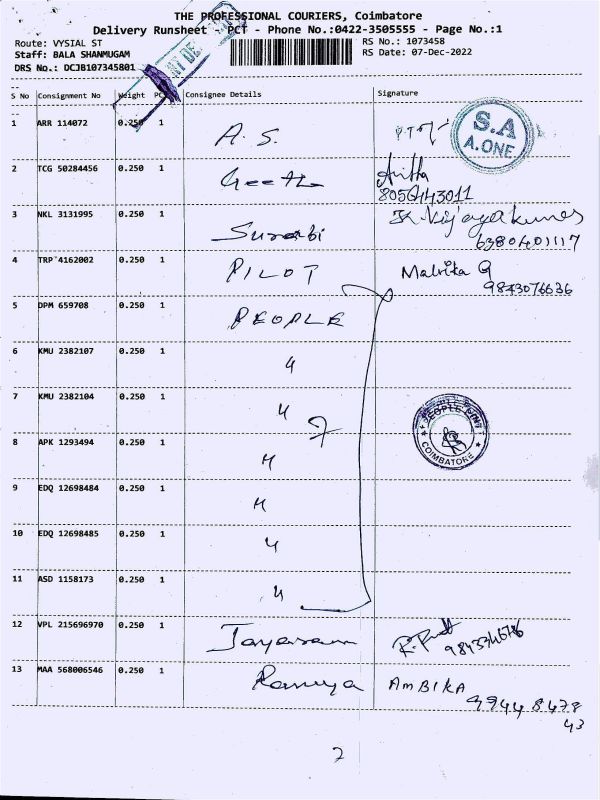 THE PROFESSIONAL COURIERS, Coimbatore
Delivery Runsheet - PCT - Phone No.:0422-3505555 - Page No.:1
Route: VYSIAL ST RS No.: 1073458
Staff: BALA SHANMUGAM RS Date: 07-Dec-2022
DRS No.: DCJB107345801
S No Consignment No Weight PC Consignee Details Signature
1 ARR 114072 0.250 1 A. S. S.A A.ONE
2 TCG 50284456 0.250 1 Geetha Anitha
3 NKL 3131995 0.250 1 Surabi K. Vijayakumar
6380401117
4 TRP 4162002 0.250 1 PILOT Malvika G
9843076636
5 DPM 659708 0.250 1 PEOPLE
6 KMU 2382107 0.250 1 "
7 KMU 2382104 0.250 1 " 7 PEOPLE POINT COIMBATORE
8 APK 1293494 0.250 1 "
9 EDQ 12698484 0.250 1 "
10 EDQ 12698485 0.250 1 "
11 ASD 1158173 0.250 1 "
12 VPL 215696970 0.250 1 Jayaram
13 MAA 568006546 0.250 1 Ramya AMBIKA
99448478
43
2